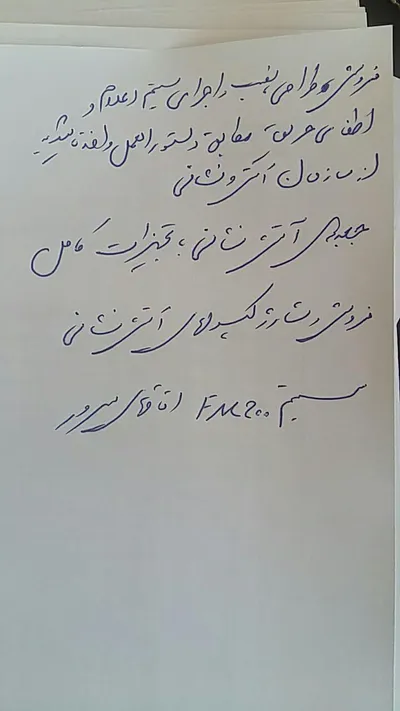 فروش و طراحی، نصب و اجرای سیستم اعلام و
اطفای حریق مطابق دستورالعمل و اخذ تائیدیه
از سازمان آتش نشانی
جعبه‌های آتش نشانی با تجهیزات کامل
فروش و شارژ کپسولهای آتش نشانی
سیستم FM200 اتاقهای سرور